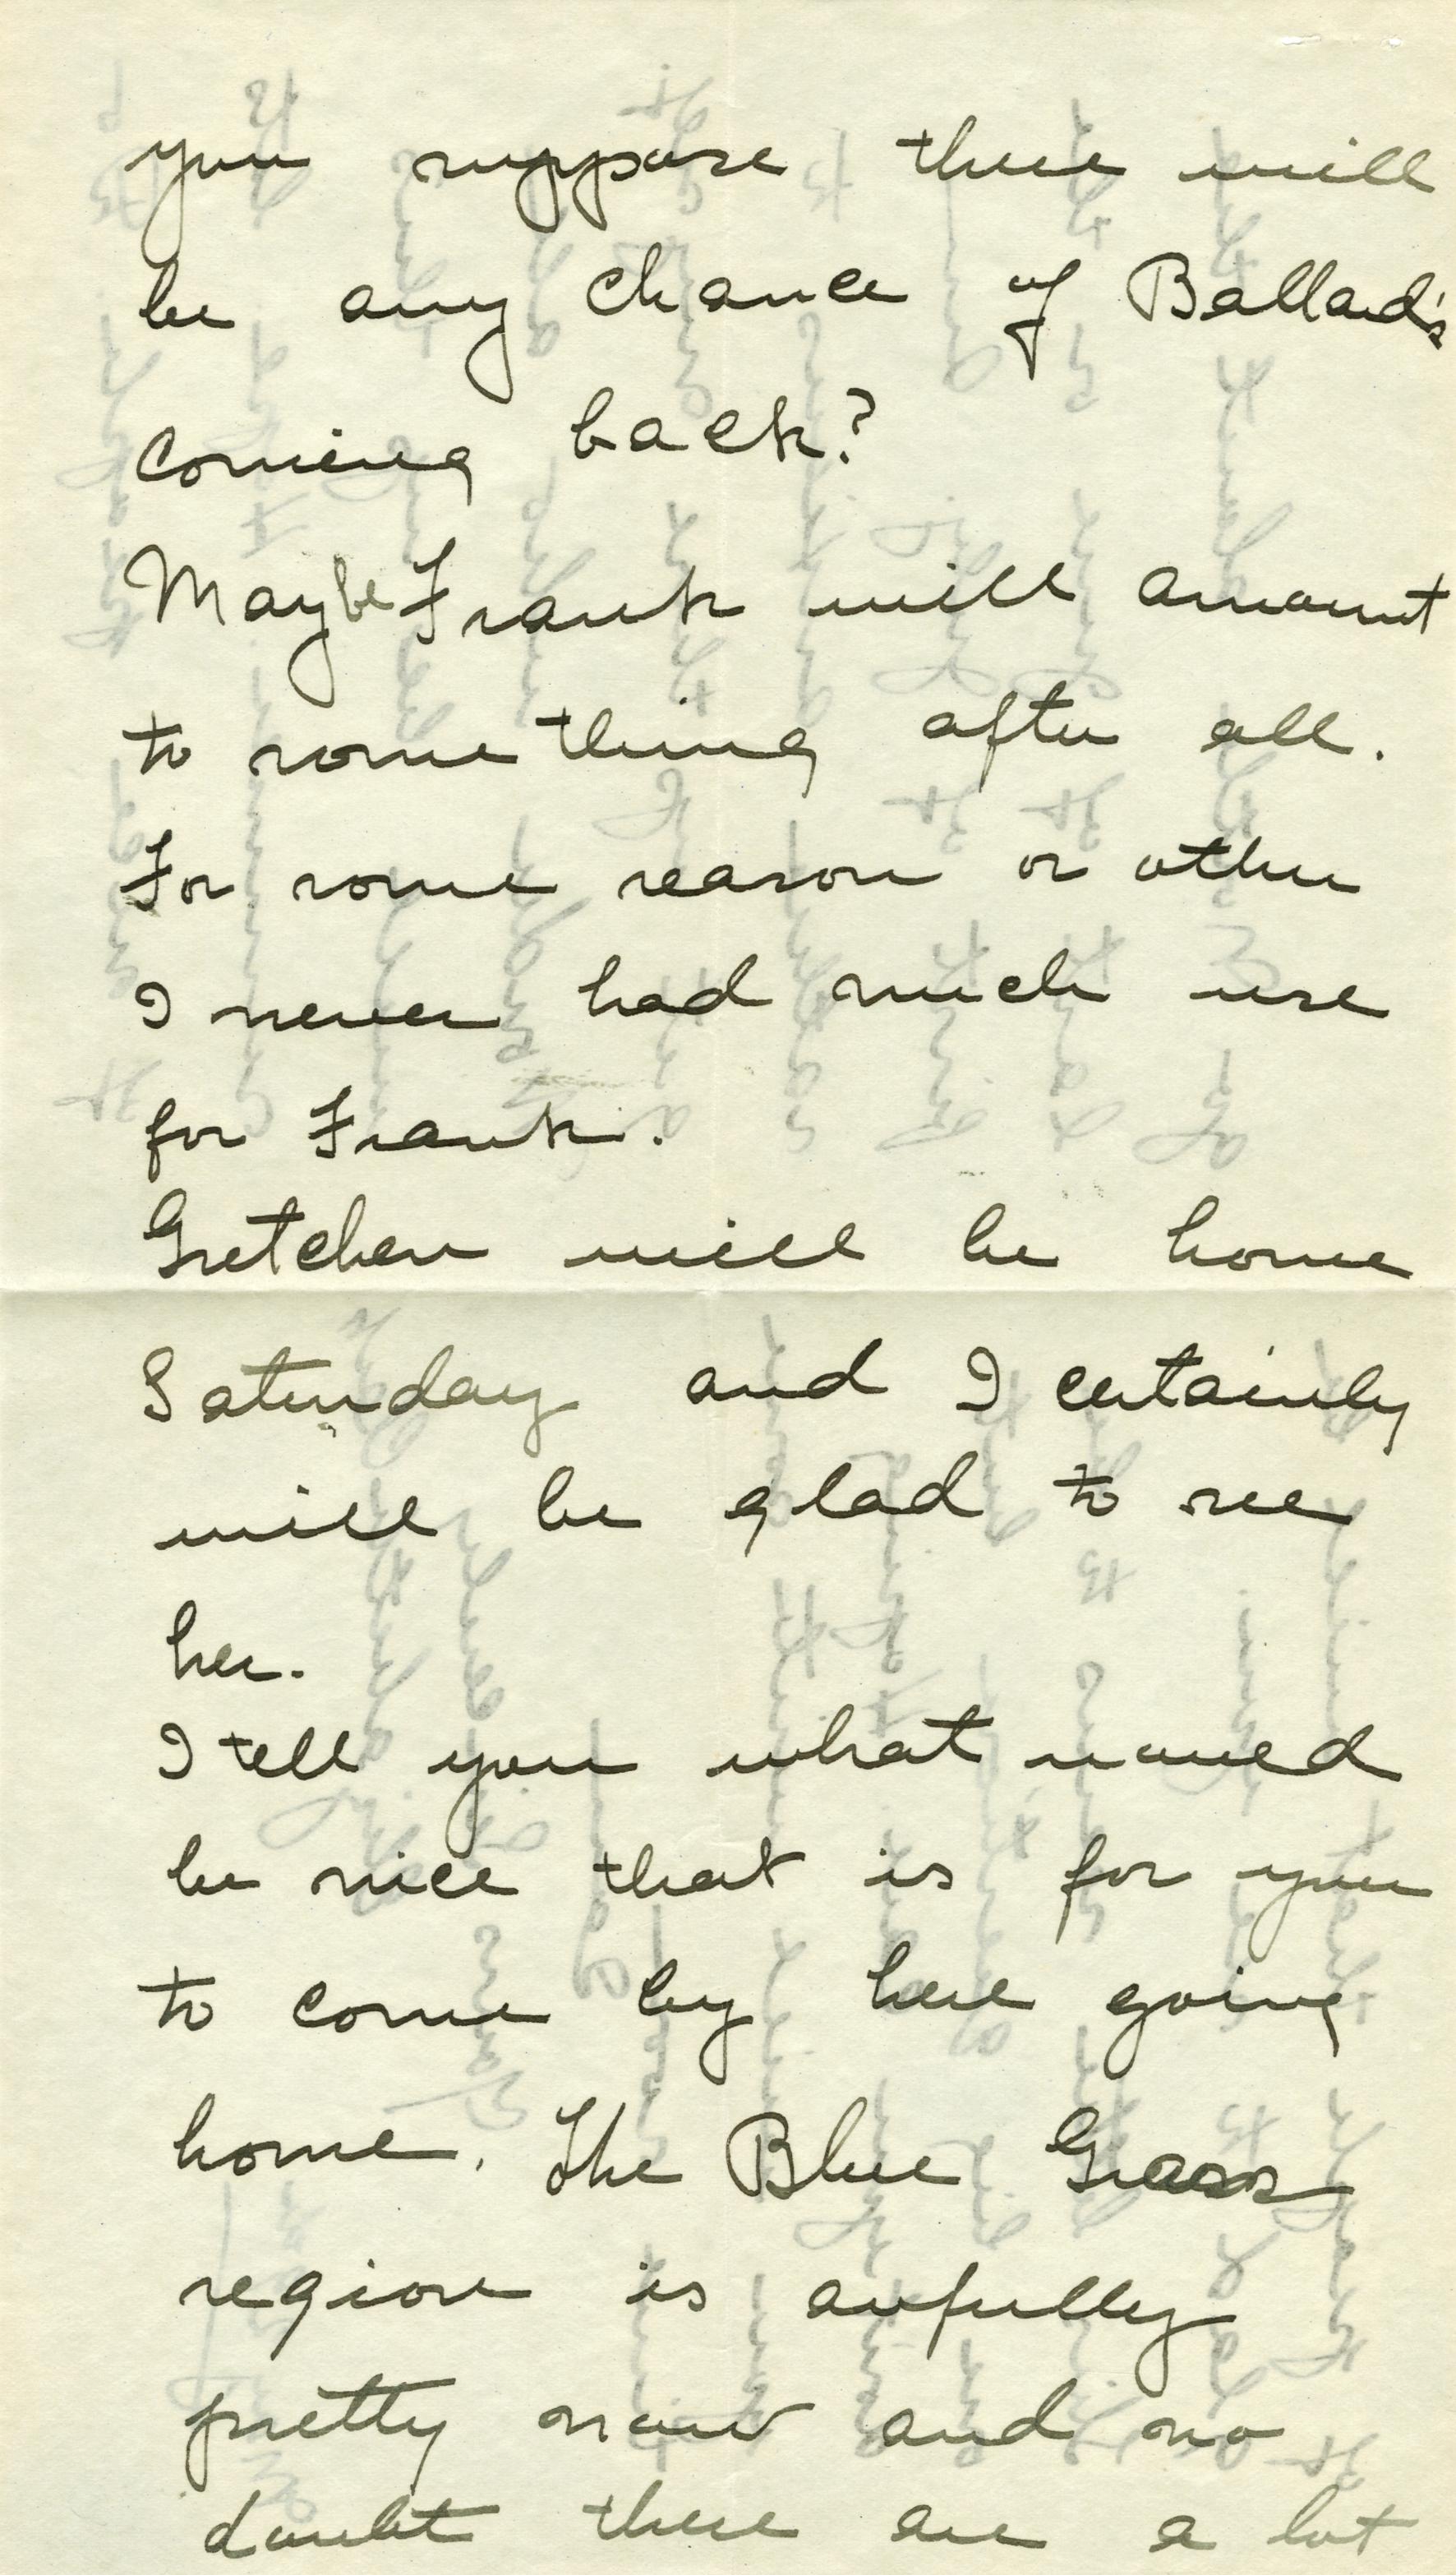 you suppose there will
be any chance of Ballard's
coming back?
Maybe Frank will amount
to something after all.
For some reason or other
I never had much use
for Frank.
Gretchen will be home
Saturday and I certainly
will be glad to see
her.
I tell you what would
be nice that is for you
to come by here going
home. The Blue Grass
region is awfully
pretty now and no
doubt there are a lot